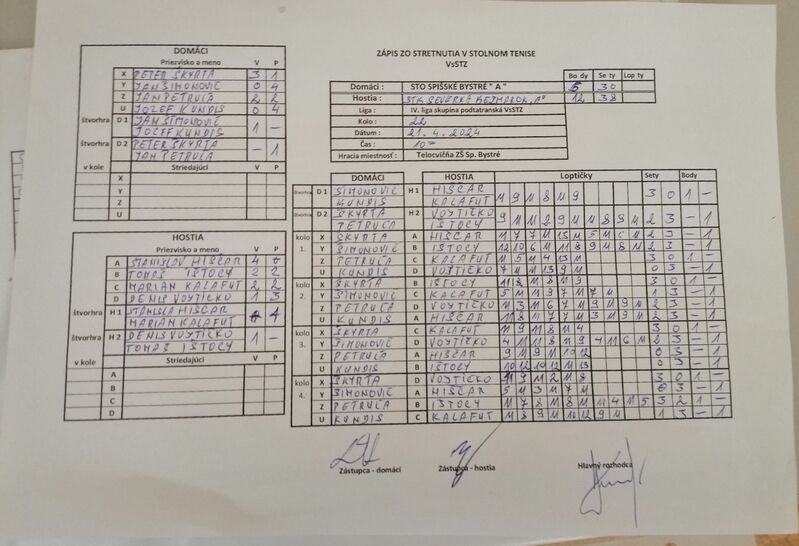 ZÁPIS ZO STRETNUTIA V STOLNOM TENISE
VsSTZ
DOMÁCI
Priezvisko a meno V P
X PETER ŠKYRTA 3 1
Y JÁN ŠIMONOVIČ 0 4
Z JÁN PETRUĽA 2 2
U JOZEF KUNDIS 0 4
štvorhra D 1 JÁN ŠIMONOVIČ 1 –
JOZEF KUNDIS
štvorhra D 2 PETER ŠKYRTA – 1
JÁN PETRUĽA
v kole Striedajúci V P
X
Y
Z
U
Bo dy Se ty Lop ty
Domáci : STO SPIŠSKÉ BYSTRÉ " A " 6 30
Hostia : 12 38
Liga : IV. liga skupina podtatranská VsSTZ
Kolo : 22
Dátum : 21. 4. 2024
Čas : 10
Hracia miestnosť : Telocvičňa ZŠ Sp. Bystré
HOSTIA
Priezvisko a meno V P
A STANISLAV HIŠČAR 4 0
B TOMÁŠ ISTOCY 2 2
C MARIÁN KALAFUT 2 2
D DENIS VOJTIČKO 1 3
štvorhra H 1 HIŠČAR 1
MARIÁN KALAFUT
štvorhra H 2 DENIS VOJTIČKO 1 –
TOMÁŠ ISTOCY
v kole Striedajúci V P
A
B
C
D
DOMÁCI HOSTIA Loptičky Sety Body
štvorhra D 1 ŠIMONOVIČ H 1 HIŠČAR 11 9 11 8 11 9 3 0 1 –
KUNDIS KALAFUT
štvorhra D 2 ŠKYRTA H 2 VOJTIČKO 9 11 11 2 9 11 11 8 9 11 2 3 – 1
PETRUĽA ISTOCY
kolo 1. X ŠKYRTA A HIŠČAR 2 3 – 1
Y ŠIMONOVIČ B ISTOCY 12 10 6 11 11 8 9 11 8 11 2 3 – 1
Z PETRUĽA C KALAFUT 11 5 11 4 13 11 3 0 1 –
U KUNDIS D VOJTIČKO 7 11 11 13 9 11 0 3 – 1
kolo 2. X ŠKYRTA B ISTOCY 11 8 11 8 11 9 3 0 1 –
Y ŠIMONOVIČ C KALAFUT 1 3 – 1
Z PETRUĽA D VOJTIČKO 11 3 11 6 7 11 9 11 9 11 2 3 – 1
U KUNDIS A HIŠČAR 11 8 11 7 7 11 3 11 9 11 2 3 – 1
kolo 3. X ŠKYRTA C KALAFUT 11 9 11 8 11 4 3 0 1 –
Y ŠIMONOVIČ D VOJTIČKO 4 11 11 8 11 9 4 11 6 11 2 3 – 1
Z PETRUĽA A HIŠČAR 9 11 9 11 10 12 0 3 – 1
U KUNDIS B ISTOCY 10 12 10 12 11 13 0 3 – 1
kolo 4. X ŠKYRTA D VOJTIČKO 3 0 1 –
Y ŠIMONOVIČ A HIŠČAR 5 11 3 11 7 11 0 3 – 1
Z PETRUĽA B ISTOCY 11 7 8 11 8 11 11 4 11 5 3 2 1 –
U KUNDIS C KALAFUT 11 8 9 11 10 12 9 11 1 3 – 1
Zástupca - domáci Zástupca - hostia Hlavný rozhodca